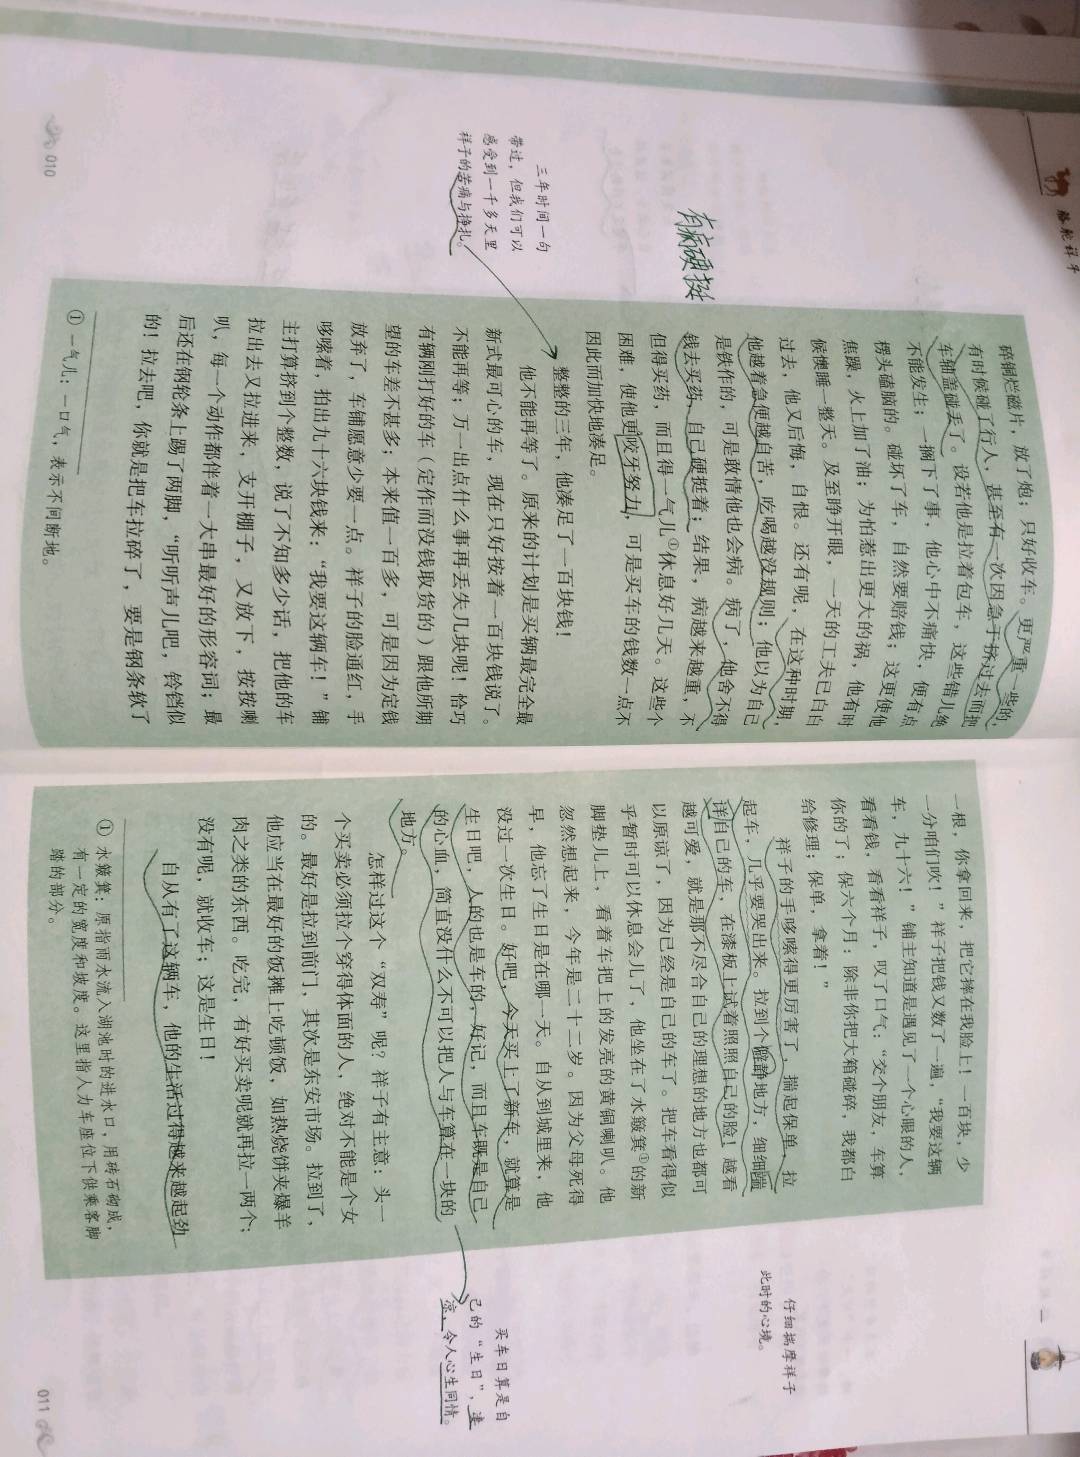 骆驼祥子
碎铜烂磁片，放了炮；只好收车。更严重一些的，
有时候碰了行人，甚至有一次因急于挤过去而把
车轴盖碰丢了。设若他是拉着包车，这些错儿绝
不能发生；一搁下了事，他心中不痛快，便有点
楞头磕脑的。碰坏了车，自然要赔钱；这更使他
焦躁，火上加了油；为怕惹出更大的祸，他有时
候懊睡一整天。及至睁开眼，一天的工夫已白白
过去，他又后悔，自恨。还有呢，在这种时期，
他越着急便越自苦，吃喝越没规则；他以为自己
是铁作的，可是敢情他也会病。病了，他舍不得
钱去买药，自己硬挺着；结果，病越来越重，不
但得买药，而且得一气儿①休息好几天。这些个
困难，使他更咬牙努力，可是买车的钱数一点不
因此而加快地凑足。
整整的三年，他凑足了一百块钱！
他不能再等了。原来的计划是买辆最完全最
新式最可心的车，现在只好按着一百块钱说了。
不能再等；万一出点什么事再丢失几块呢！恰巧
有辆刚打好的车（定作而没钱取货的）跟他所期
望的车差不甚多；本来值一百多，可是因为定钱
放弃了，车铺愿意少要一点。祥子的脸通红，手
哆嗦着，拍出九十六块钱来：“我要这辆车！”铺
主打算挤到个整数，说了不知多少话，把他的车
拉出去又拉进来，支开棚子，又放下，按按喇
叭，每一个动作都伴着一大串最好的形容词；最
后还在钢轮条上踢了两脚，“听听声儿吧，铃铛似
的！拉去吧，你就是把车拉碎了，要是钢条软了
① 一气儿：一口气，表示不间断地。
有病硬挺
三年时间一句
带过，但我们可以
感受到一千多天里
祥子的苦痛与挣扎。
010
一
一根，你拿回来，把它摔在我脸上！一百块，少
一分咱们吹！”祥子把钱又数了一遍，“我要这辆
车，九十六！”铺主知道是遇见了一个心眼的人，
看看钱，看看祥子，叹了口气：“交个朋友，车算
你的了；保六个月：除非你把大箱碰碎，我都白
给修理；保单，拿着！”
祥子的手哆嗦得更厉害了，揣起保单，拉
起车，几乎要哭出来。拉到个僻静地方，细细端
详自己的车，在漆板上试着照照自己的脸！越看
越可爱，就是那不尽合自己的理想的地方也都可
以原谅了，因为已经是自己的车了。把车看得似
乎暂时可以休息会儿了，他坐在了水簸箕①的新
脚垫儿上，看着车把上的发亮的黄铜喇叭。他
忽然想起来，今年是二十二岁。因为父母死得
早，他忘了生日是在哪一天。自从到城里来，他
没过一次生日。好吧，今天买上了新车，就算是
生日吧，人的也是车的，好记，而且车既是自己
的心血，简直没什么不可以把人与车算在一块的
地方。
怎样过这个“双寿”呢？祥子有主意：头一
个买卖必须拉个穿得体面的人，绝对不能是个女
的。最好是拉到前门，其次是东安市场。拉到了，
他应当在最好的饭摊上吃顿饭，如热烧饼夹爆羊
肉之类的东西。吃完，有好买卖呢就再拉一两个；
没有呢，就收车；这是生日！
自从有了这辆车，他的生活过得越来越起劲
① 水簸箕：原指雨水流入湖池时的进水口，用砖石砌成，
有一定的宽度和坡度。这里指人力车座位下供乘客脚
踏的部分。
仔细揣摩祥子
此时的心境。
买车日算是自
己的“生日”，凄
凉，令人心生同情。
011